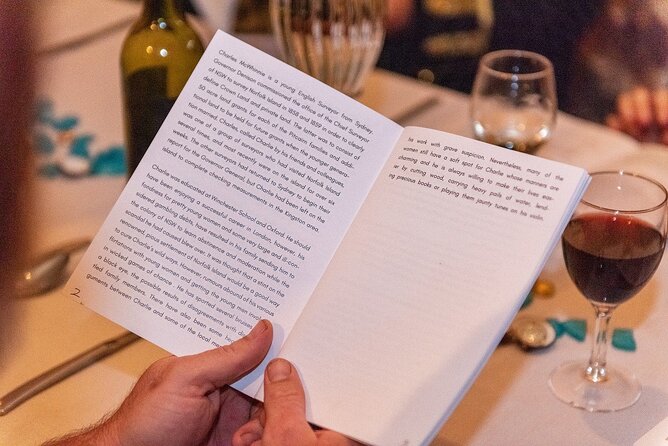 Charles McWhinnie is a young English Surveyor from Sydney.
Governor Denison commissioned the office of the Chief Surveyor
of NSW to survey Norfolk Island in 1858 and 1859 in order to clearly
define Crown Land and private land. The latter was to consist of
50 acre land grants for each of the Pitcairn families and addi-
tional land to be held for future grants when the younger genera-
tion married. Charles, called Charlie by his friends and colleagues,
was one of a group of surveyors who had visited Norfolk Island
several times, and most recently were on the island for over six
weeks. The other surveyors had returned to Sydney to begin their
report for the Governor General, but Charlie had been left on the
island to complete checking measurements in the Kingston area.
Charlie was educated at Winchester School and Oxford. He should
have been enjoying a successful career in London, however, his
fondness for pretty young women and some very large and ill-con-
sidered gambling debts, have resulted in his family sending him to
the colony of NSW to learn abstinence and moderation while the
scandal he had caused blew over. It was thought that a stint on the
renowned pious settlement of Norfolk Island would be a good way
to cure Charlie's wild ways. However, rumours abound of his various
flirtations with young women and getting the young men involved
in wicked games of chance. He has sported several bruises
a blind eye, the possible results of disagreements with
family members. There have also been some
guments between Charlie and some of the local
2
his work with grave suspicion. Nevertheless, many of the
women still have a soft spot for Charlie whose manners are
charming and he is always willing to make their lives eas-
ier by cutting wood, carrying heavy pails of water, lend-
ing precious books or playing them jaunty tunes on his violin.